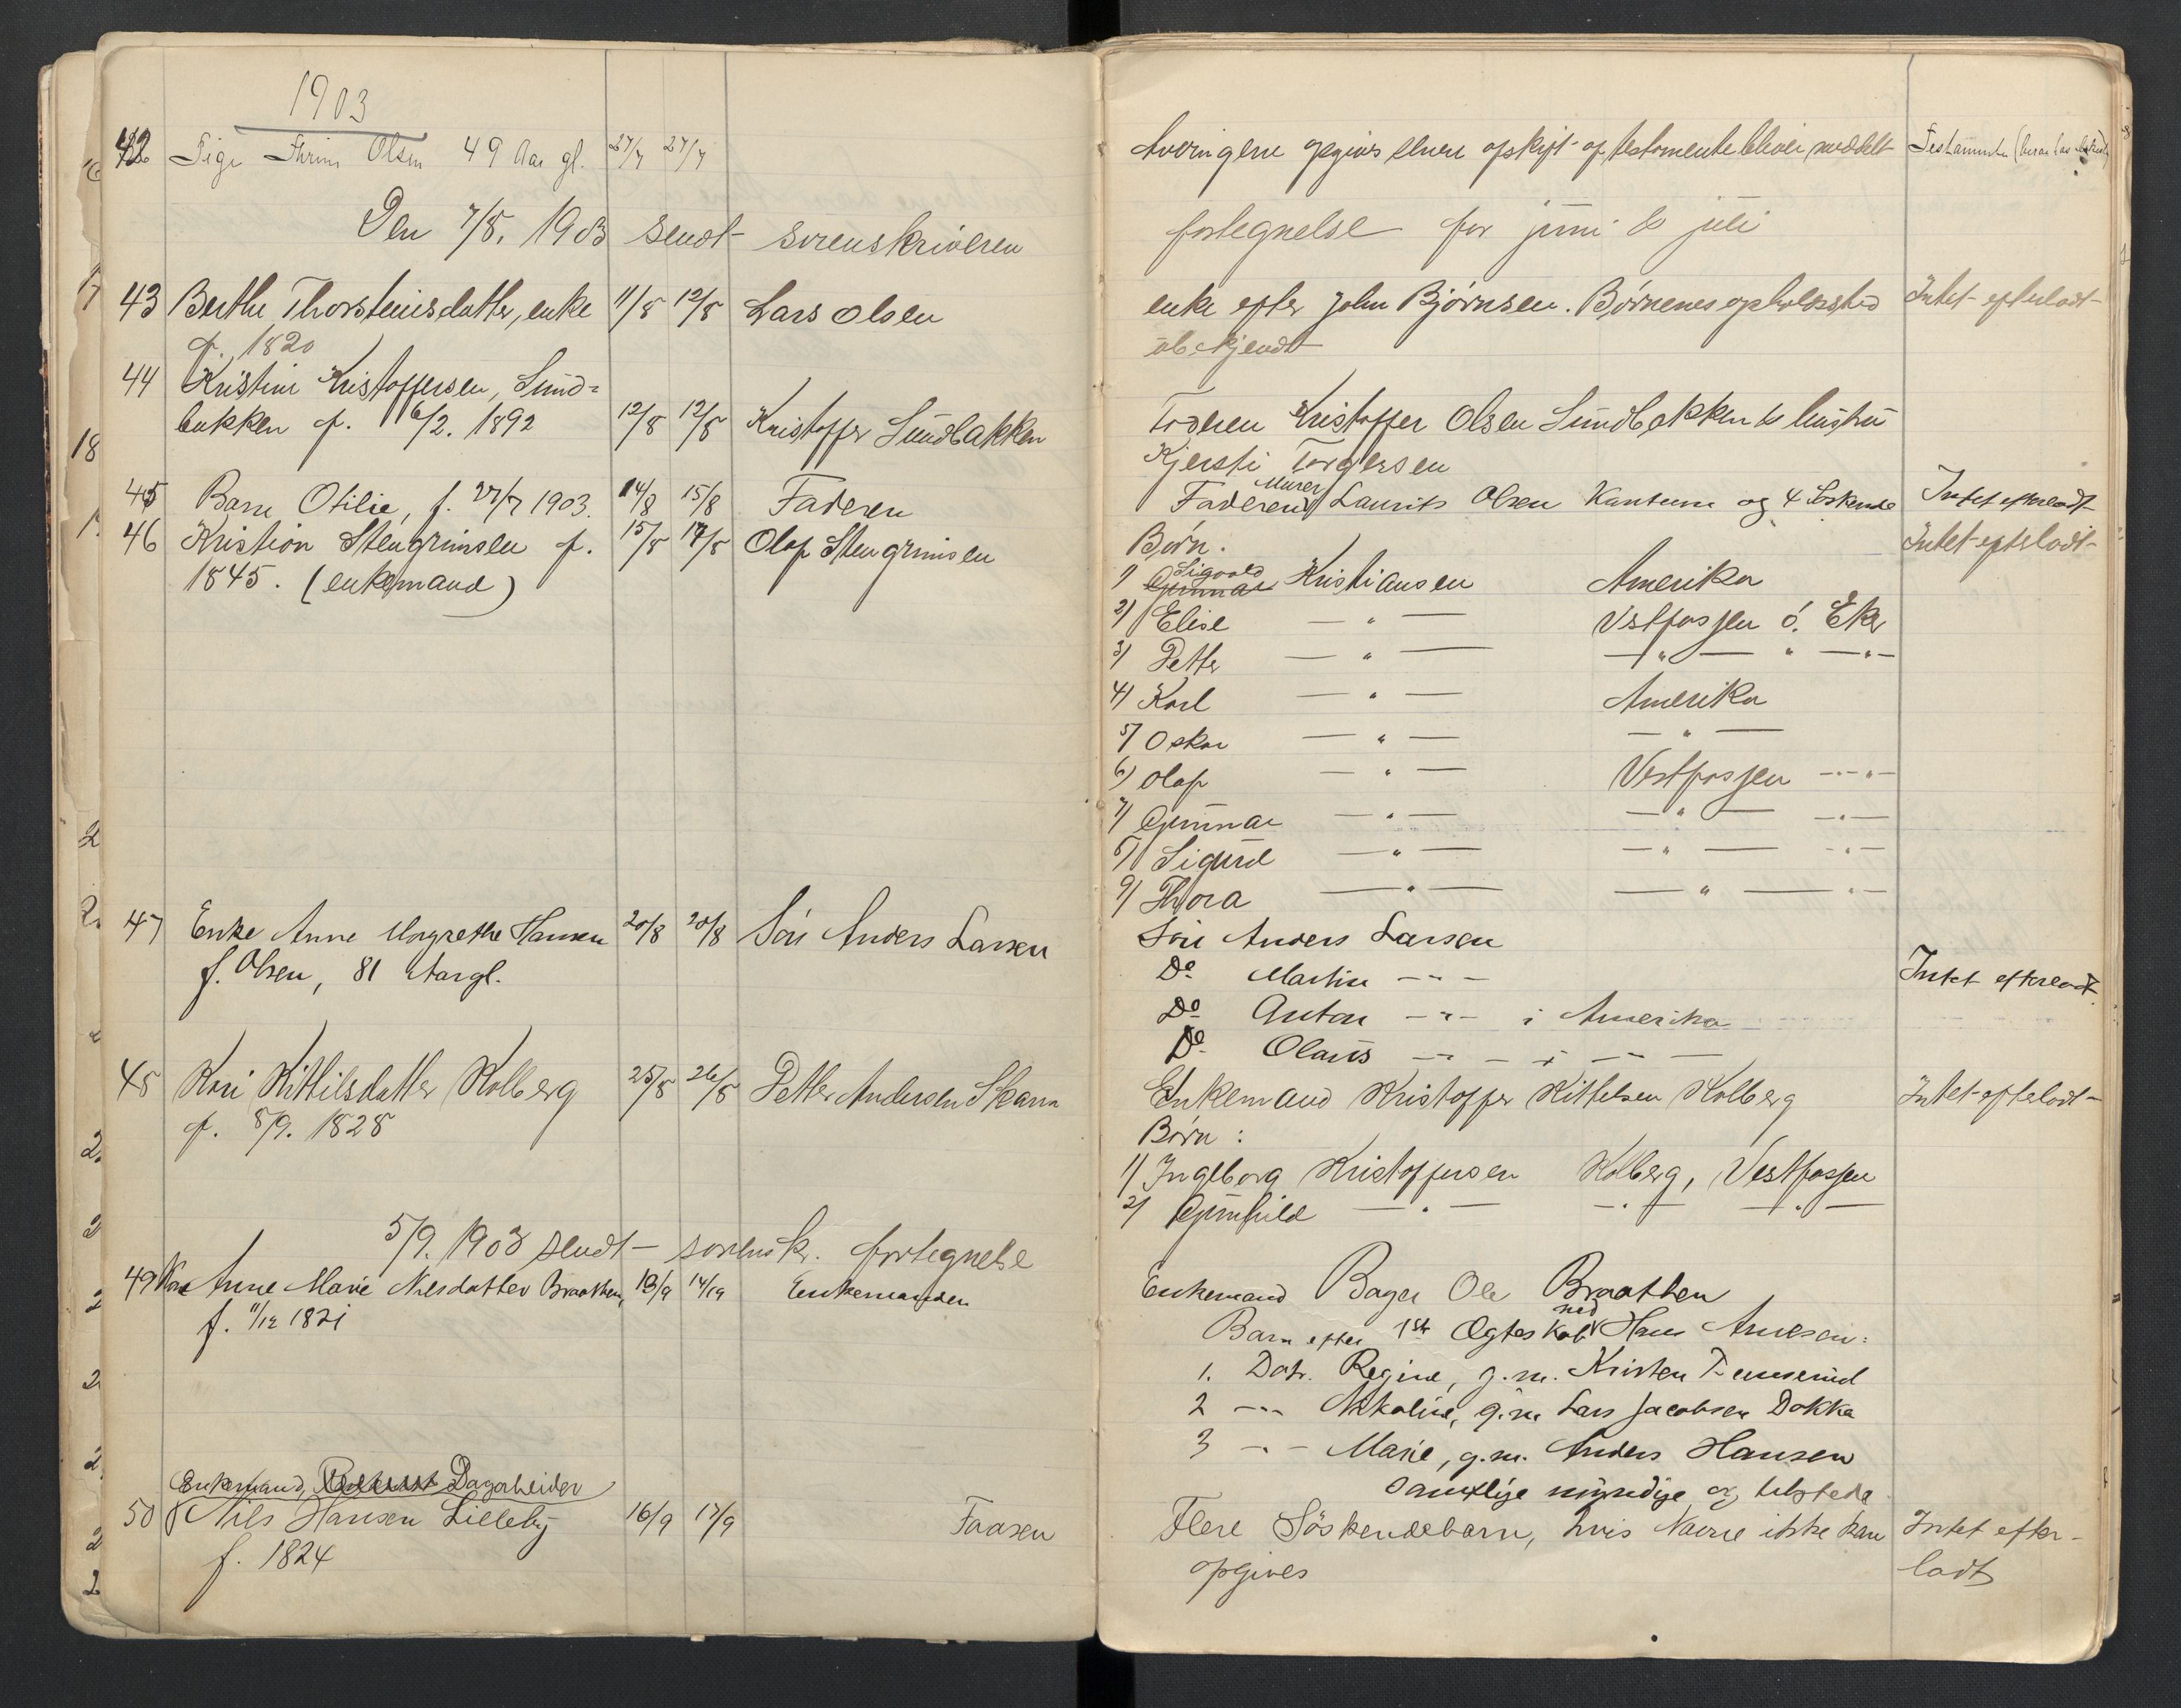 1903
42 Pige Thrine Olsen 49 Aar gl. 27/7 27/7
Den 7/8. 1903 sendt sorenskriveren
43 Berthe Thorsteinsdatter, enke 11/8 12/8 Lars Olsen
f. 1820
44 Kristine Kristoffersen, Sund-
bakken f. 16/2. 1892 12/8 12/8 Kristoffer Sundbakken
45 Barn Otilie, f. 27/7 1903. 14/8 15/8 Faderen
46 Kristian Stengrimsen f. 15/8 17/8 Olaf Stengrimsen
1845. (enkemand)
47 Enke Anne Margrethe Hansen 20/8 20/8 Søn Anders Larsen
f. Olsen, 81 Aar gl.
48 Kari Kittilsdatter Kolberg 25/8 26/8 Petter Andersen Skara
f. 8/9. 1828
5/9. 1903 sendt sorenskr. fortegnelse
49 Kone Anne Marie Nilsdatter Braathen, 13/9 14/9 Enkemanden
f. 11/12 1821
Enkemand, Dagarbeider
50 Nils Hansen Lilleby 16/9 17/9 Faasen
f. 1824
Arvingene opgives efter opskrift af testamente bliver meddelt Testamente
fortegnelse for juni & juli
enke efter John Bjørnsen. Børnenes opholdssted Intet efterladt
ubekjendt
Faderen Kristoffer Olsen Sundbakken & hustru
Kjersti Torgersen
Murer
Faderen Laurits Olsen og 4 Søskende Intet efterladt
Børn. Intet efterladt
Sigvald
1) Gunnar Kristiansen Amerika
2) Elise — " — Vestfossen ö. Eker
3) Petter — " — — " — " — " —
4) Karl — " — Amerika
5) Oskar — " — — " —
6) Olaf — " — Vestfossen — " —
7) Gunnar — " — — " — — " —
8) Sigurd — " — — " — — " —
9) Thora — " — — " — — " —
Søn Anders Larsen
Do Martin — " — Intet efterladt
Do Anton — " — i Amerika
Do Olaus — " — i — " —
Enkemand Kristoffer Kittelsen Kolberg Intet efterladt
Børn:
1) Ingeborg Kristoffersen Kolberg, Vestfossen
2) Gunhild — " — — " — — " —
Enkemand Bager Ole Braathen
med
Barn efter 1ste Ægteskab Hans Arnesen:
1. Datr. Regine, g. m. Kristen
2 — " — Nikoline, g. m. Lars Jacobsen Dokka
3 — " — Marie, g. m. Anders Hansen
Samtlige myndige og tilstede
Flere Söskendebarn, hvis Navne ikke kan Intet efter-
opgives ladt